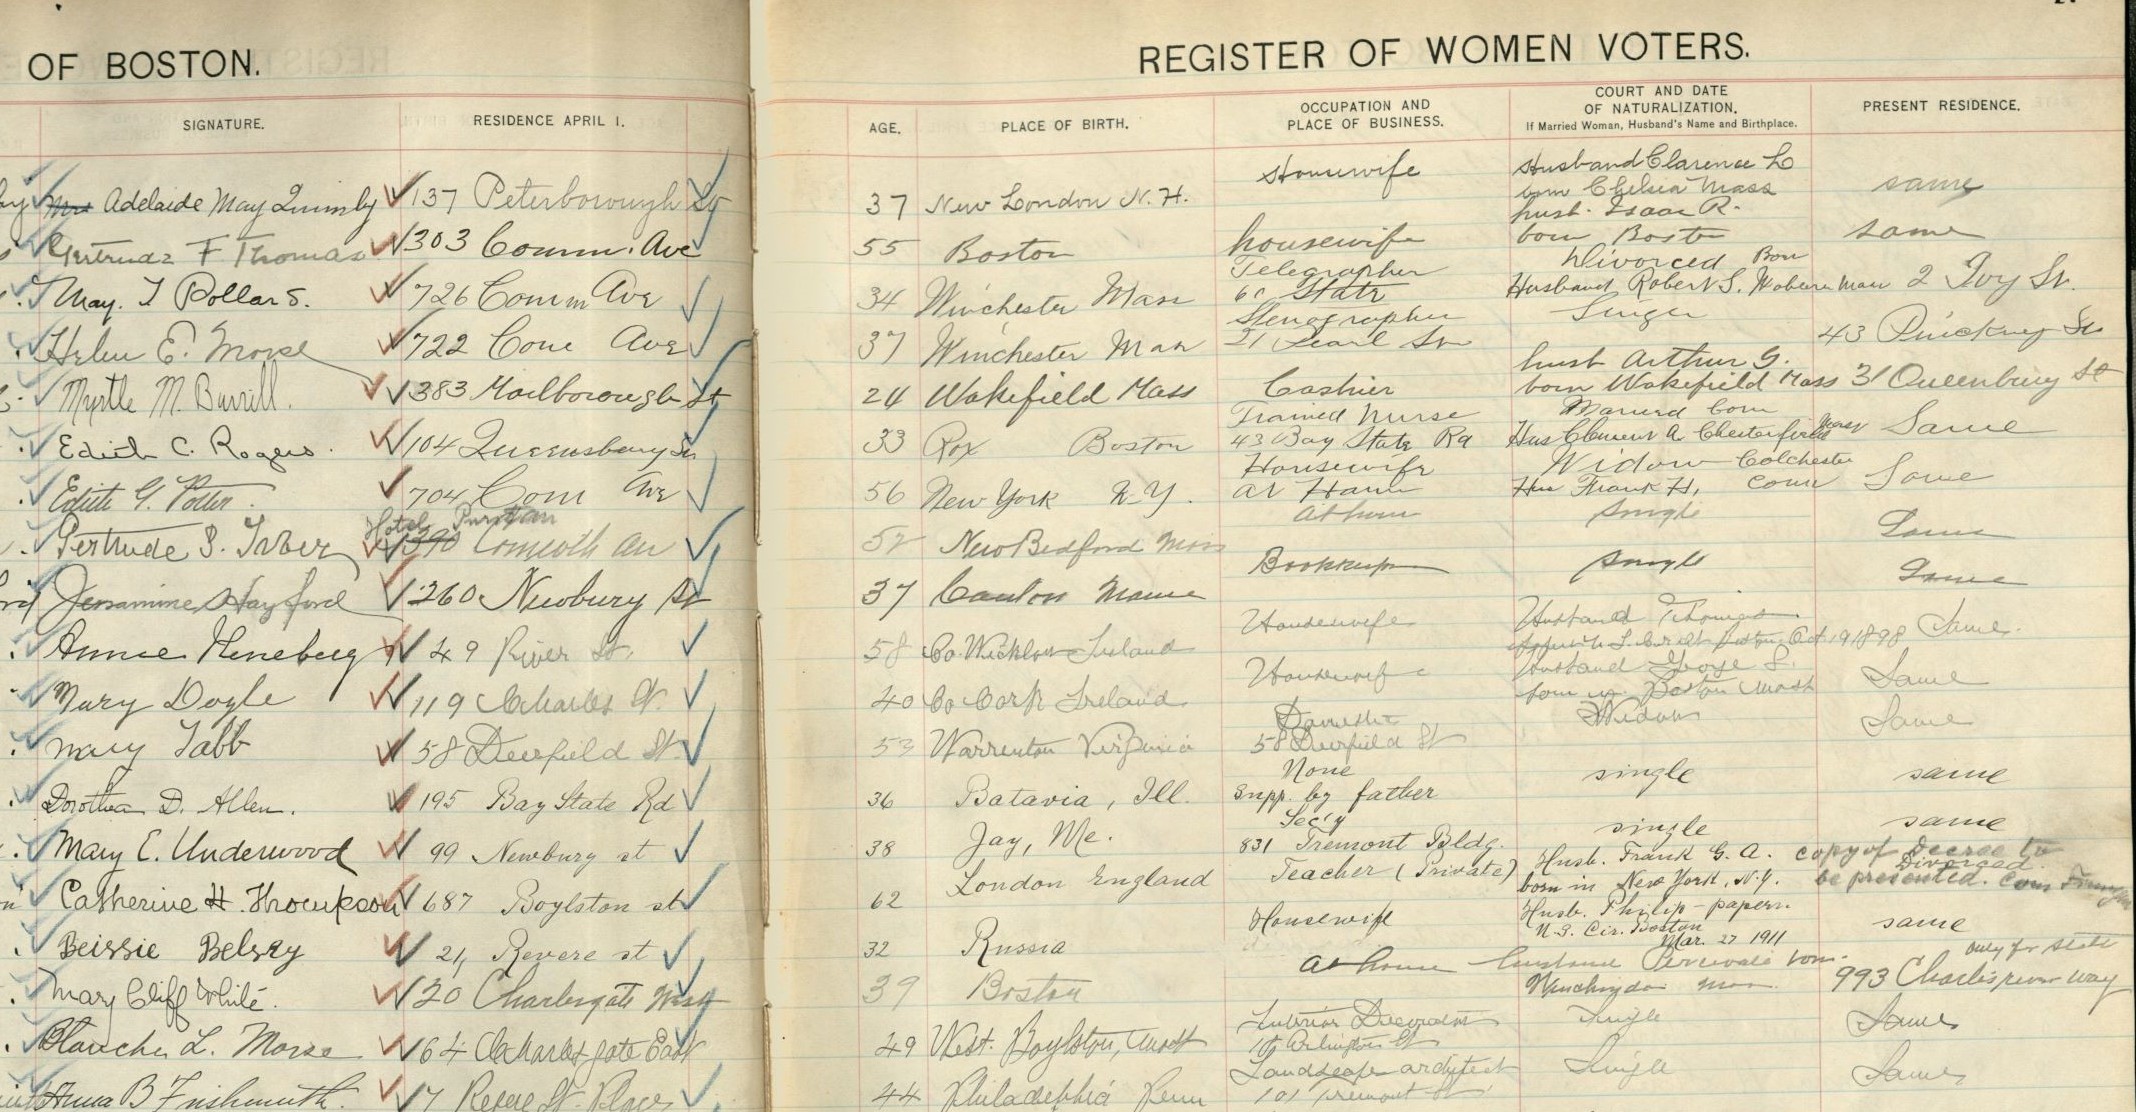 OF BOSTON.
REGISTER OF WOMEN VOTERS.
SIGNATURE.
RESIDENCE APRIL 1.
AGE.
PLACE OF BIRTH.
OCCUPATION AND
PLACE OF BUSINESS.
COURT AND DATE
OF NATURALIZATION.
If Married Woman, Husband's Name and Birthplace.
PRESENT RESIDENCE.
Housewife Husband Clarence L
Mrs Adelaide May Quimby 137 Peterborough St 37 New London N. H. born Chelsea Mass same
husb. Isaac R.
Gertrude F Thomas 303 Comm. Ave 55 Boston housewife born Boston same
Telegrapher Divorced Born
May. T Pollard. 726 Comm Ave 34 Winchester Mass 60 State Husband Robert S. Woburn Mass 2 Ivy St.
Stenographer Single
Helen E. Morse 722 Com Ave 37 Winchester Mass 21 Pearl St 43 Pinckney St
husb Arthur G.
Myrtle M. Burrill. 383 Marlborough St 24 Wakefield Mass Cashier born Wakefield Mass 31 Queensbury St
Trained Nurse Married born
Edith C. Rogers. 104 Queensbury St 33 Rox Boston 43 Bay State Rd Hus Clement A Chesterfield Same
Housewife Widow Colchester
Edith G. Potter. 704 Com Ave 56 New York N.Y. at Home Hus Frank H, Conn Same
Hotel Puritan at home Single
Gertrude S. Taber 390 Comwlth Av 52 New Bedford Mass Same
Bookkeeper Single
Jessamine Hayford 260 Newbury St 37 Canton Maine Same
Housewife Husband Thomas
Annie Heneberg 49 River St. 58 Co. Wicklow Ireland Boston Oct 19 1898 Same
Housewife Husband George S.
Mary Doyle 119 Charles St. 40 Co Cork Ireland born in Boston Mass Same
Domestic Widow
Mary Tabb 58 Deerfield St. 53 Warrenton Virginia 58 Deerfield St Same
None
Dorothea D. Allen. 195 Bay State Rd 36 Batavia, Ill. supp. by father single same
Sec'y
Mary E. Underwood 99 Newbury st 38 Jay, Me. 831 Tremont Bldg. single same
Husb. Frank G. A. copy of Decree to
Divorced
Catherine H. Thompson 687 Boylston st 62 London England Teacher (Private) born in New York, N.Y. be presented.
Husb. Philip - papers.
Beissie Belsey 21 Revere st 32 Russia Housewife U.S. Cir. Boston same
Mar. 27 1911
only for State
Mary Cliff White. 20 Charlesgate West 39 Boston at home husband Percival born. 993 Charles river way
Winchendon Mass
Interior Decorator Single
Blanche L. Morse 64 Charlesgate East 49 West. Boylston, Mass Arlington St Same
Landscape architect Single
Anna B Frishmuth. 7 St. Place 44 Philadelphia Penn 101 Tremont St Same